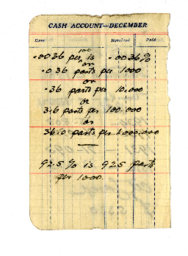 CASH ACCOUNT—DECEMBER
Date Received Paid
.0036 per is .0036%
or
.036 parts per 1000
or
.36 parts per 10.000
or
3.6 parts per 100.000
or
36.0 parts per 1.000.000
92.5 % is 925 parts
per 1000